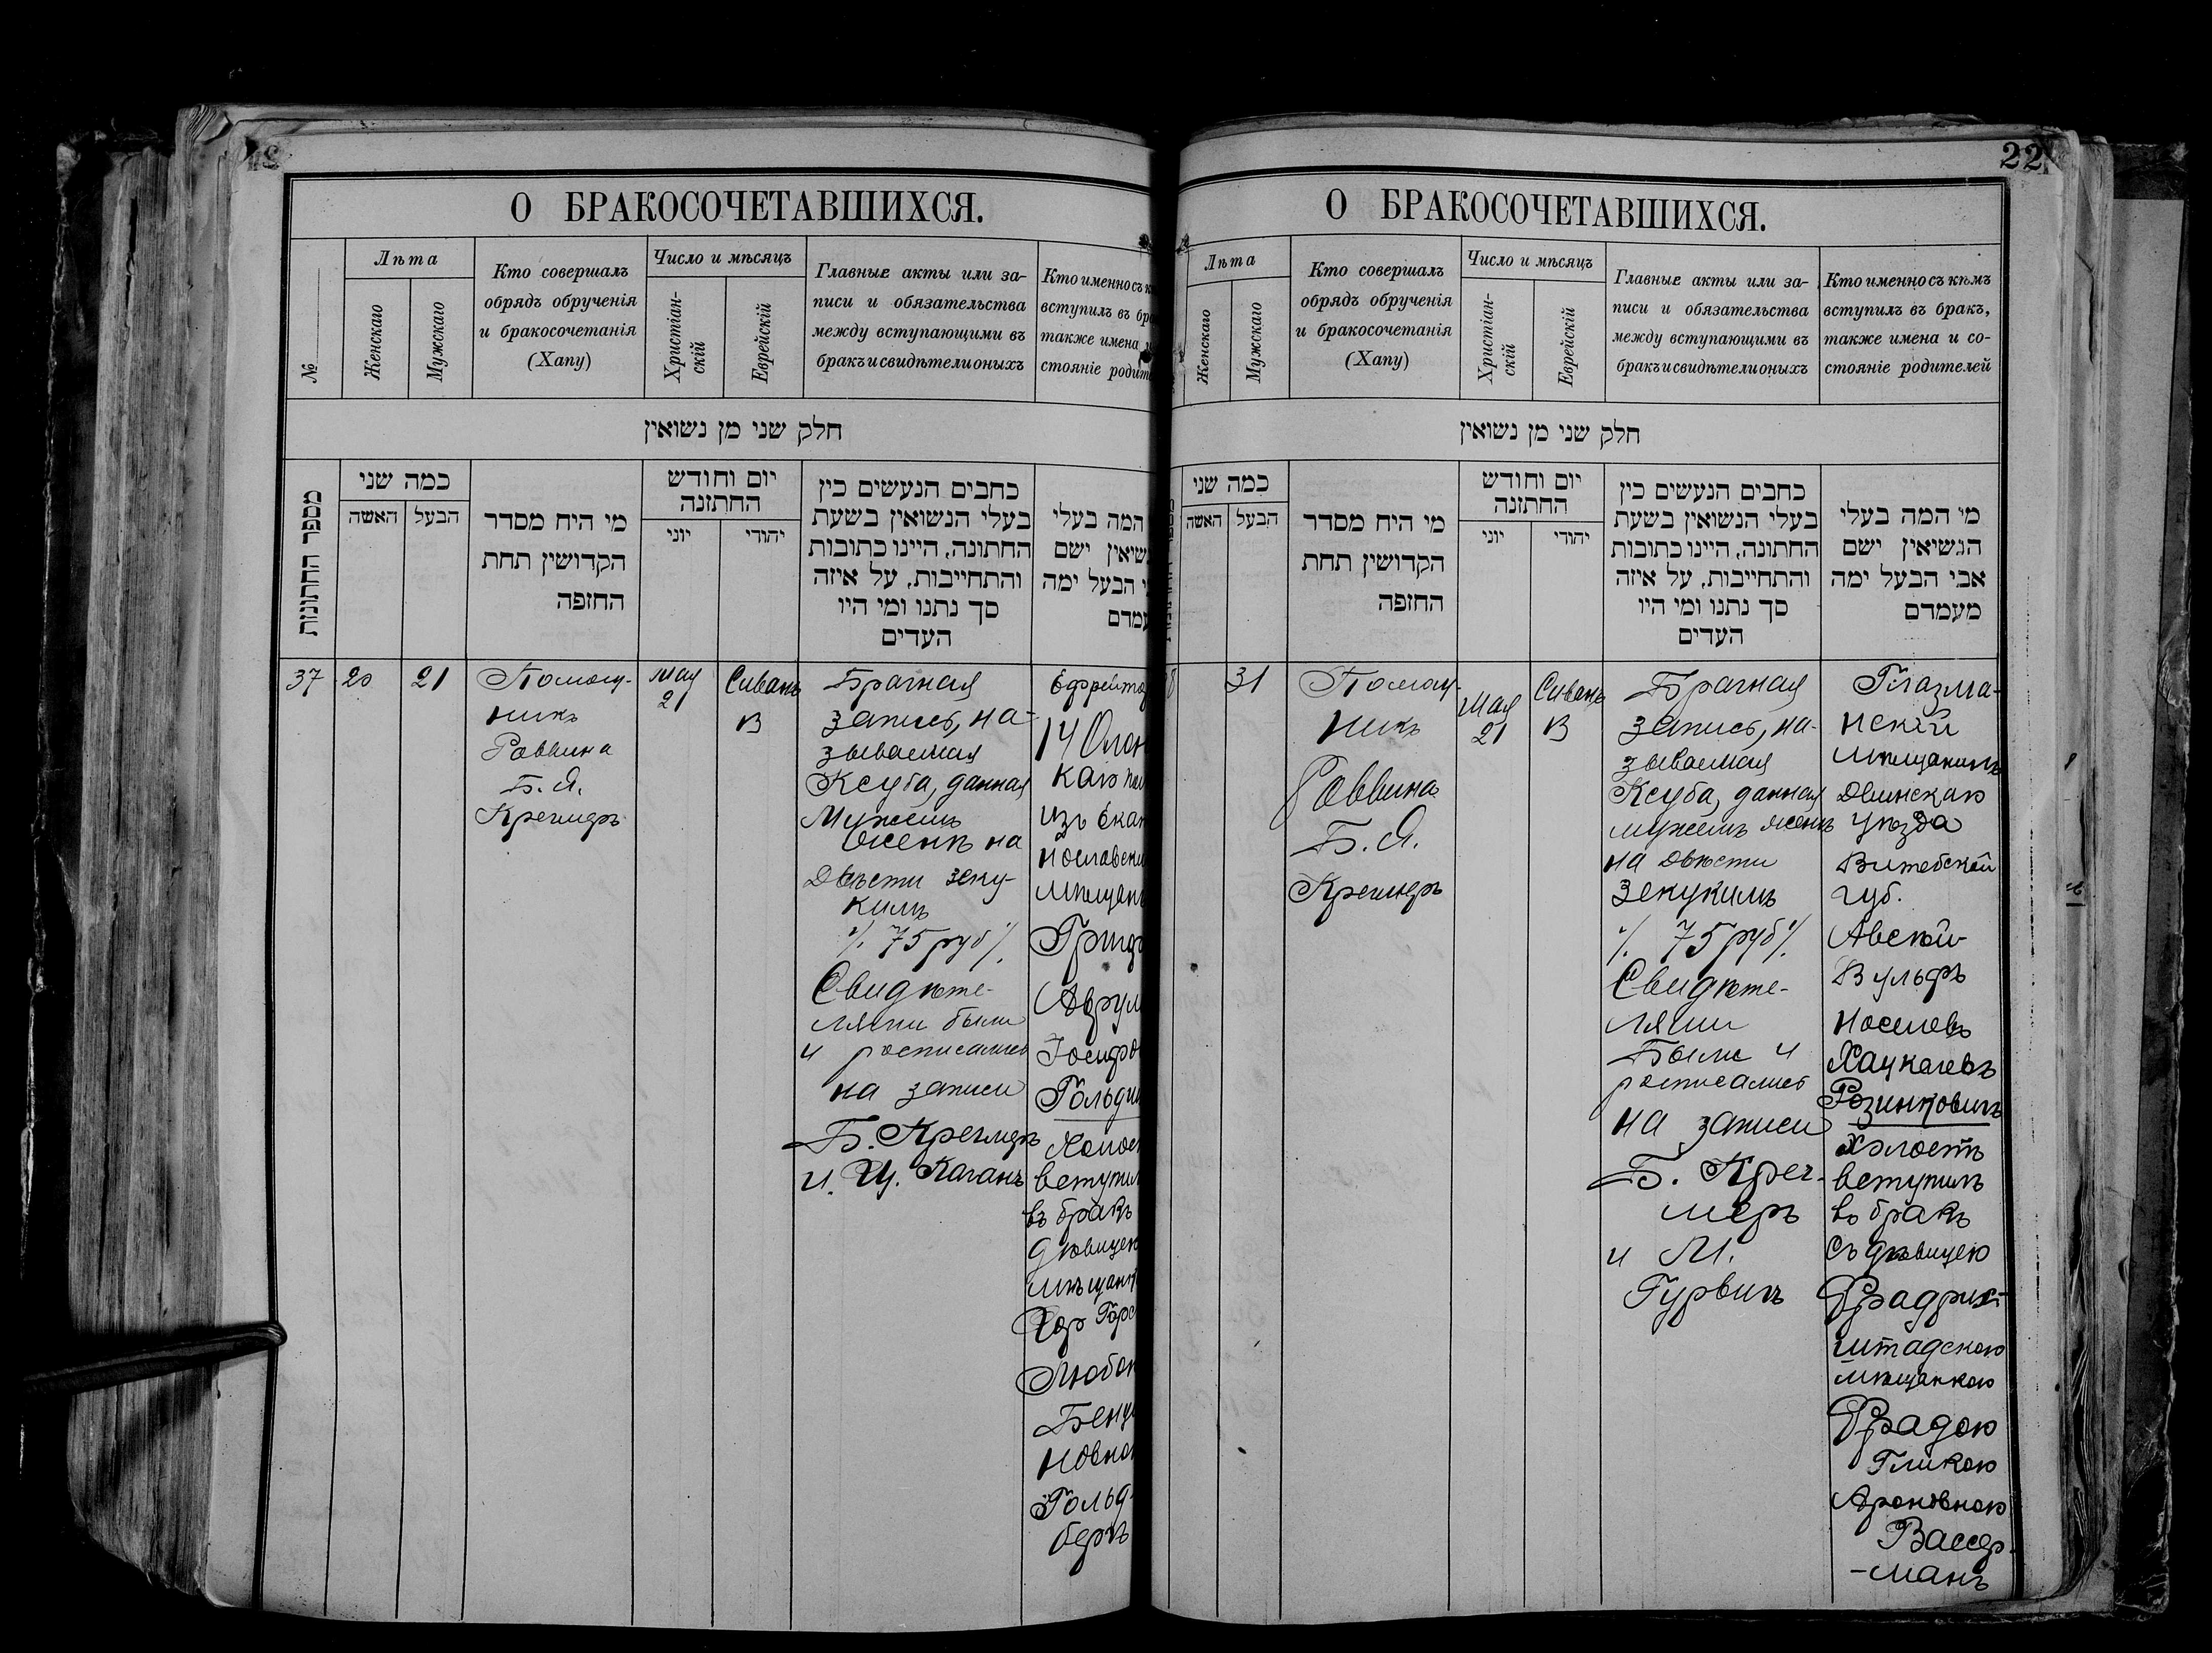 О БРАКОСОЧЕТАВШИХСЯ.
№
Лѣта
Женскаго
Мужскаго
Кто совершалъ
обрядъ обрученія
и бракосочетанія
(Хапу)
Число и мѣсяцъ
Христіан-
скій
Еврейскій
Главные акты или за-
писи и обязательства
между вступающими въ
бракъ и свидѣтели оныхъ
Кто именно съ
вступилъ въ
также имена
стояніе
חלק שני מן נשואין
מספר החתונות
כמה שני
האשה
הבעל
מי היח מסדר
הקדושין תחת
החזפה
יום וחודש
החתונה
יוני
יהודי
כחבים הנעשים כין
בעלי הנשואין בשעת
החתונה, היינו כתובות
והתחייבות, על איזה
סך נתנו ומי היו
העדים
המה בעלי
ישם
הבעל ימה
37
20
21
Помощ-
никъ
Раввина
Б. Я.
Кремеръ
Мая
21
Сиванъ
В
Брачная
запись, на-
зываемая
Ксуба, данная
Мужемъ
женѣ на
Двѣсти зеку-
кимъ
٪ 75 руб ٪
Свидѣте-
лями были
и росписались
на записи
Б. Кремеръ
и Ц. Каганъ
изъ
въ бракъ
беръ
22
О БРАКОСОЧЕТАВШИХСЯ.
Лѣта
Женскаго
Мужскаго
Кто совершалъ
обрядъ обрученія
и бракосочетанія
(Хапу)
Число и мѣсяцъ
Христіан-
скій
Еврейскій
Главные акты или за-
писи и обязательства
между вступающими въ
бракъ и свидѣтели оныхъ
Кто именно съ кѣмъ
вступилъ въ бракъ,
также имена и со-
стояніе родителей
חלק שני מן נשואין
כמה שני
האשה
הבעל
מי היח מסדר
הקדושין תחת
החזפה
יום וחודש
החתונה
יוני
יהודי
כחבים הנעשים כין
בעלי הנשואין בשעת
החתונה, היינו כתובות
והתחייבות, על איזה
סך נתנו ומי היו
העדים
מי המה בעלי
הנשיאין ישם
אבי הבעל ימה
מעמדם
31
Помощ-
никъ
Раввина
Б. Я.
Кремеръ
Мая
21
Сиванъ
В
Брачная
запись, на-
зываемая
Ксуба, данная
мужемъ женѣ
на двѣсти
зекукимъ
٪ 75 руб ٪
Свидѣте-
лями
были и
росписались
на записи
Б. Кре-
меръ
и М.
Гурвичъ
Глазма-
нскій
мѣщанинъ
Двинскаго
уѣзда
Витебской
губ.
Вульфъ
Розинковичъ
холостъ
вступилъ
въ бракъ
съ дѣвицею
Фрадрих-
штадскою
мѣщанкою
Фрадою
Гликою
Ароновною
Вассер-
-манъ